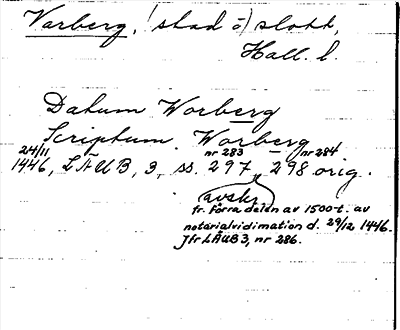 Varberg, (stad o) slott,
Hall. l.
Datum Worberg
Scriptum Worberg
24/11 nr 283 nr 284
1446, LÄUB, 3, ss. 297, 298 orig.
avskr.
fr. förra delen av 1500-t. av
notarialvidimation d. 29/12 1446.
Jfr LÄUB 3, nr 286.